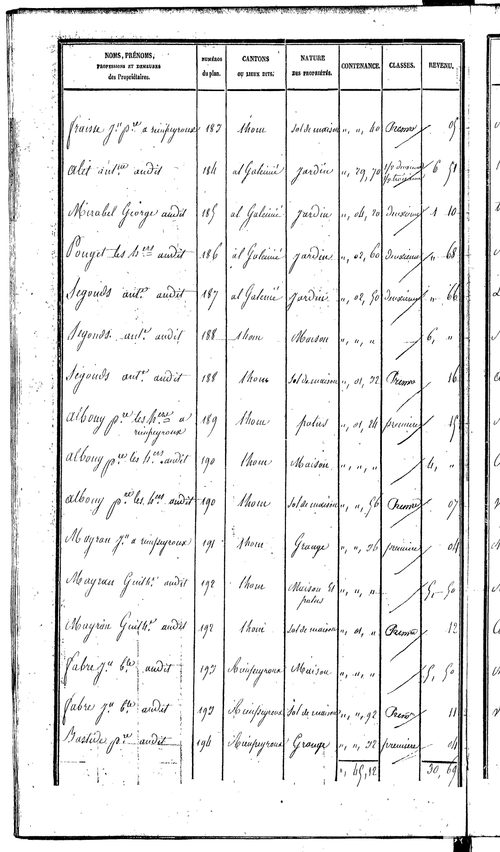 NOMS, PRÉNOMS, PROFESSIONS ET DEMEURES des Propriétaires. | NUMÉROS du plan. | CANTONS OU LIEUX DITS. | NATURE DES PROPRIÉTÉS. | CONTENANCE. | CLASSES. | REVENU.
fraisse jn pre a rimpeyroux 183 thom Sol de maison " " 40 Preme 05
alet antne audit 184 al Galinié jardin " 29, 70 6 51
Mirabel George audit 185 al Galinié jardin " 04, 20 deuxieme 1 10
Pouget les hers audit 186 al Galinié jardin " 02, 60 deuxieme " 68
Segonds antne audit 187 al Galinié jardin " 02, 50 deuxieme " 66
Segonds antne audit 188 thom Maison " " " 6, "
Segonds antne audit 188 thom Sol de maison " 01, 32 Preme 16
albouy pre les hers a rimpeyroux 189 thom patus " 01, 24 premiere 15
albouy pre les hers audit 190 thom Maison " " " 4, "
albouy pre les hers audit 190 thom Sol de maison " " 56 Preme 07
Mayran jn a rimpeyroux 191 thom Grange " " 36 premiere 04
Mayran Guilhe audit 192 thom Maison et patus " " " 5, 50
Mayran Guilhe audit 192 thom Sol de maison " 01, " Preme 12
fabre jn bte audit 193 Rimpeyroux Maison " " " 5, 50
fabre jn bte audit 193 Rimpeyroux Sol de maison " " 92 Preme 11
Bastide pre audit 194 Rimpeyroux Grange " " 32 premiere 04
" 45, 12 30, 69